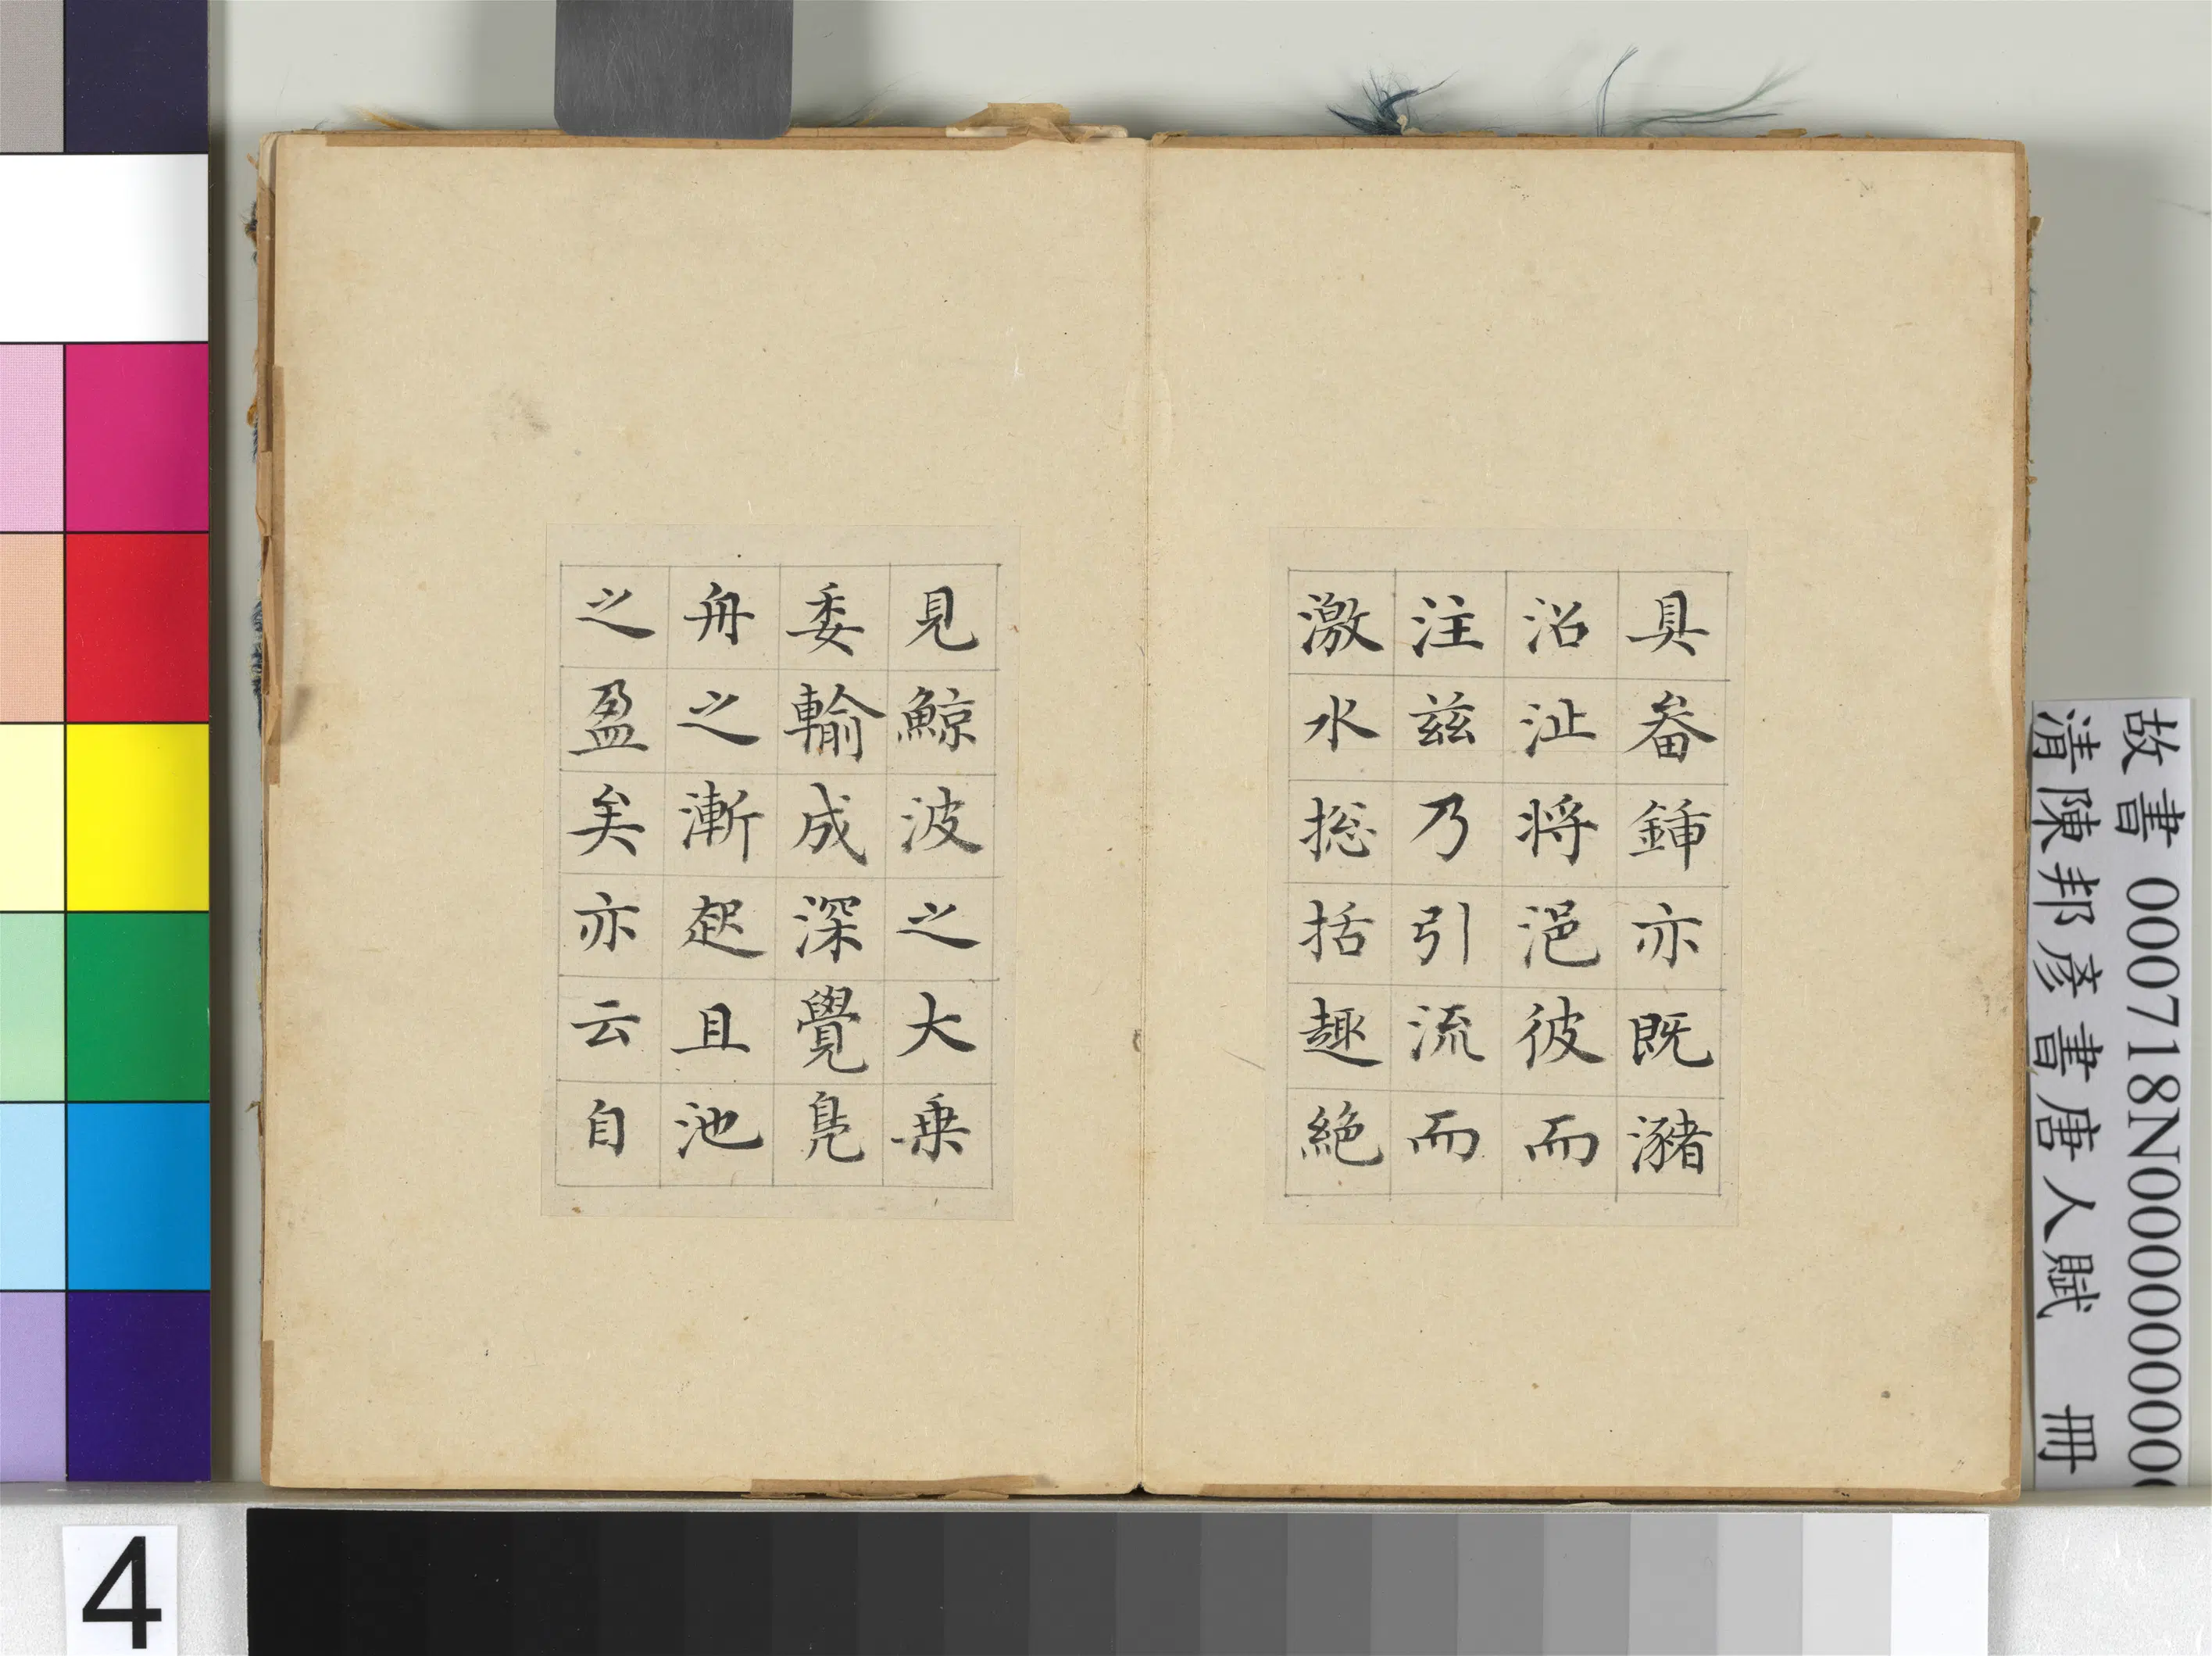 具畚鍤亦既瀦
沼沚將浥彼而
注茲乃引流而
激水捴括趣絶
見鯨波之大乗
委輸成深覺鳧
舟之漸起且池
之盈矣亦云自
故書000718N00000000
清陳邦彥書唐人賦 冊
4